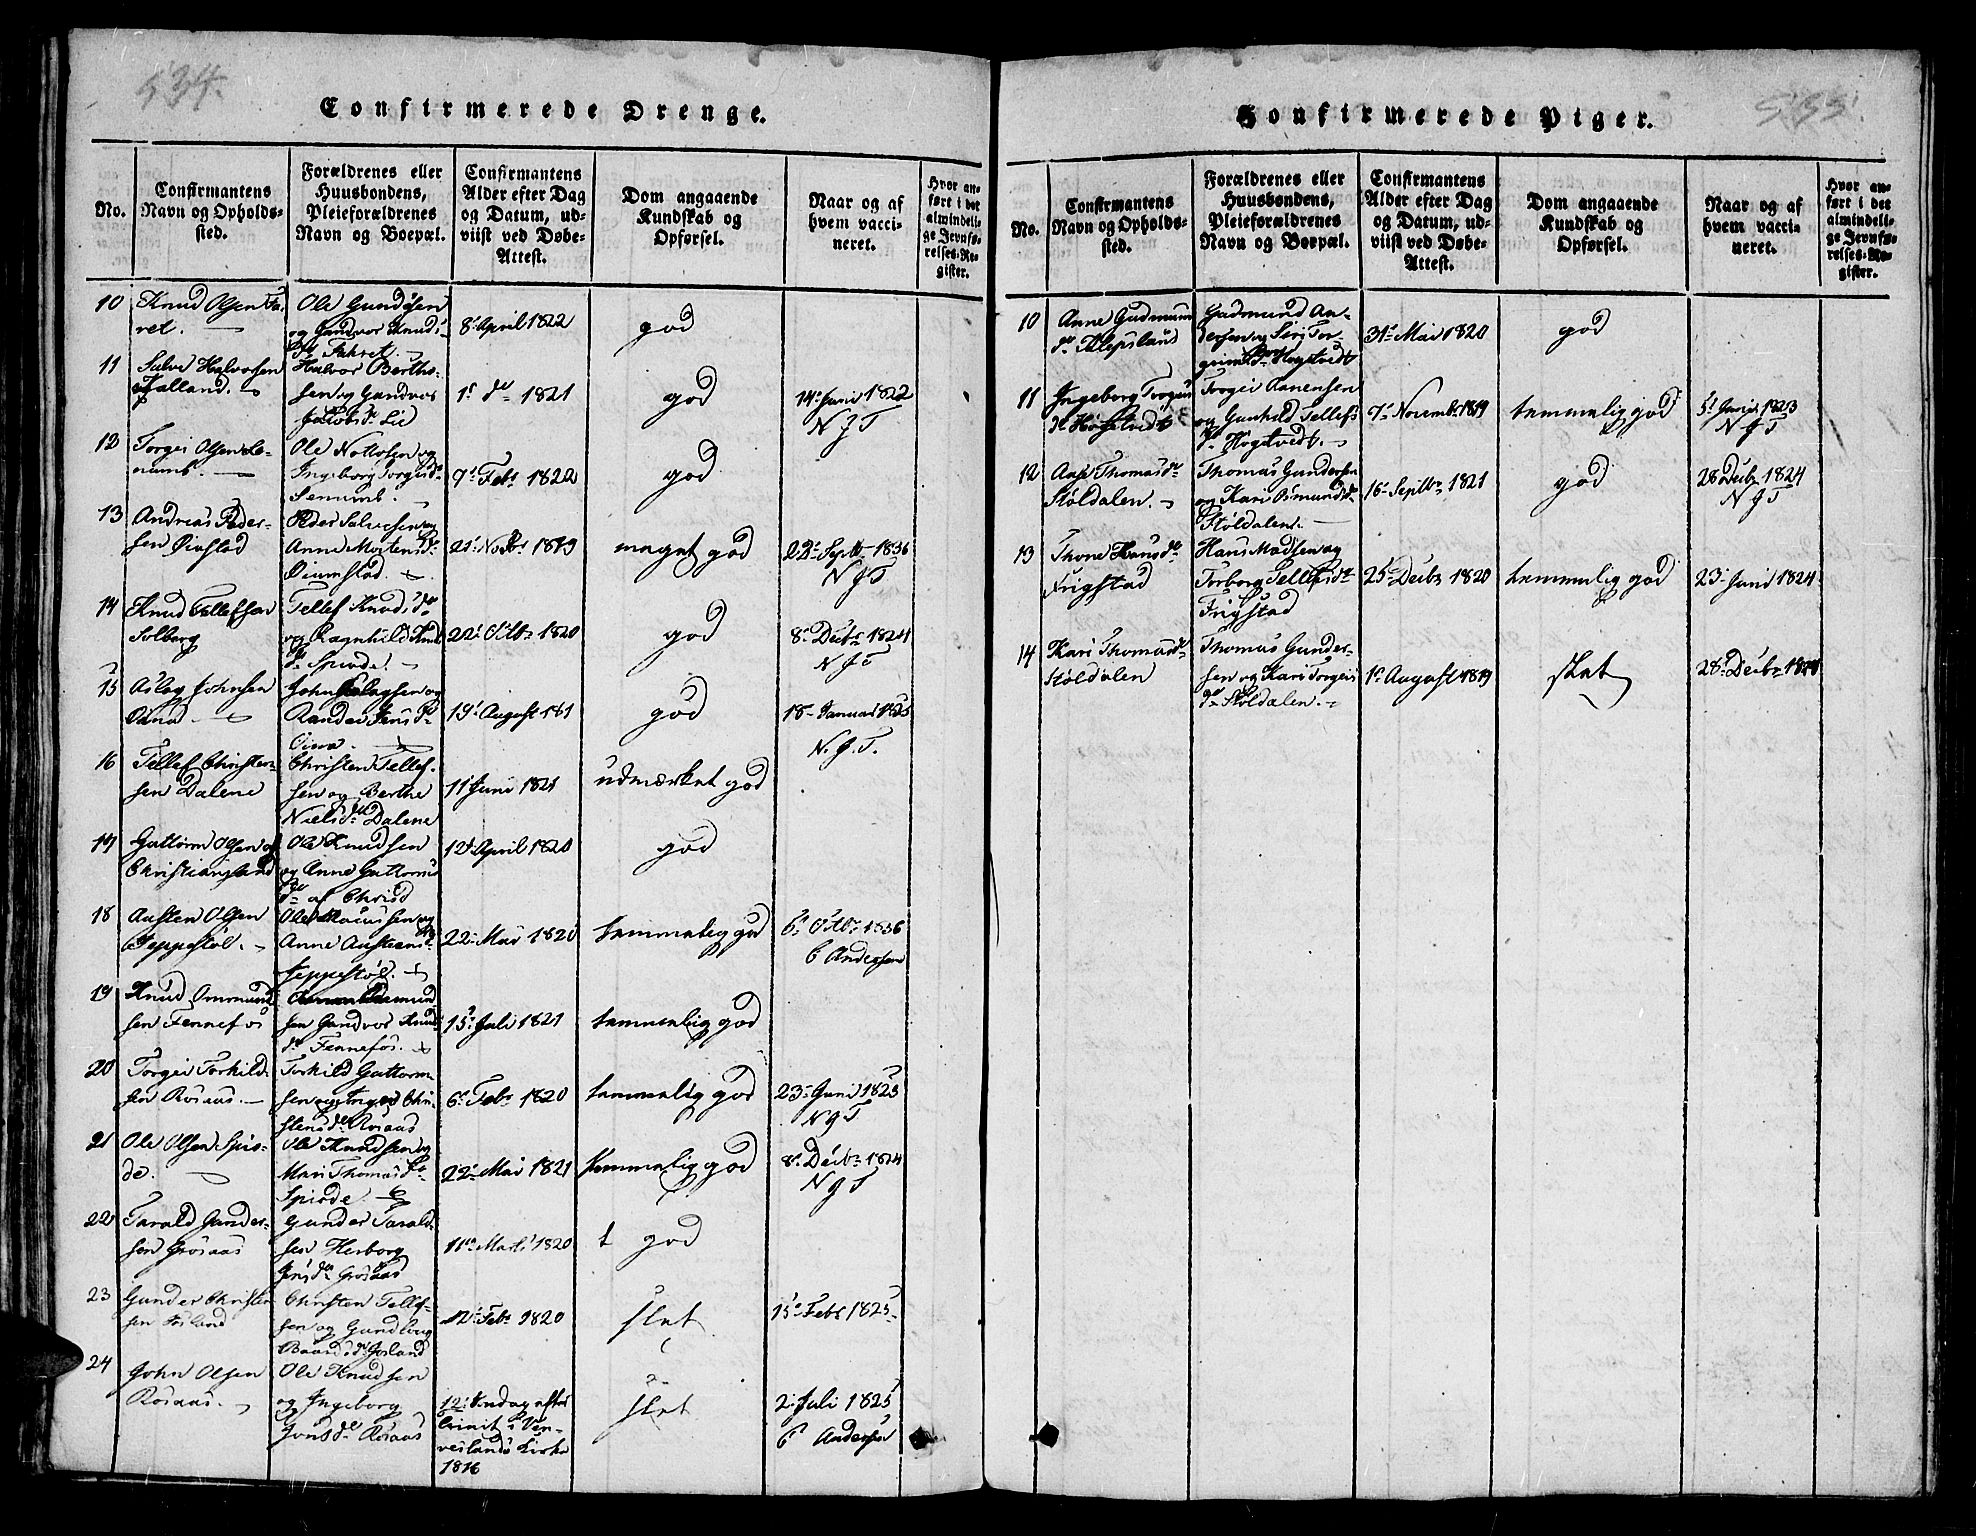 534.
Confirmerede Drenge.
No.
Confirmantens
Navn og Opholds-
sted.
Forældrenes eller
Huusbondens,
Pleieforældrenes
Navn og Boepæl.
Confirmantens
Alder efter Dag
og Datum, ud-
viist ved Døbe-
Attest.
Dom angaaende
Kundskab og
Opførsel.
Naar og af
hvem vacci-
neret.
Hvor an-
ført i det
almindeli-
ge Jevnfø-
relses-Re-
gister.
10
Knud Olsen Fa-
ret.
Ole Gundersen
og Gundvor Knuds
dr Fahret.
8de April 1822
god
11
Salve Halvorsen
Halvor Berths-
sen og Gundvor
Jacobsdr Lie
1ste do 1821
god
14de Juni 1822
N J T
12
Torgei Olsen Se-
numb.
Ole Nottosen og
Ingeborg Torgeisdr
Senumb.
9de Febr 1822
god
13
Andreas Peder-
sen Øiufstad
Peder Salvesen og
Anne Mortensdr
Øiumstad.
21de Novbr 1819
meget god
22de Septbr 1836
N J T
14
Knud Tellefsen
Solberg
Tellef Knudsdr
og Ragnhild Knuds
dr Spirde.
22de Octbr 1820
god
8de Decbr 1824
N J T
15
Aslag Johnsen
John Aslagsen og
19de August 181
god
18de Januar 1825
N. J. T.
16
Tellef Christen-
sen Dalene
Christen Tellef-
sen og Berthe
Nielsdr Dalene
11te Juni 1821
udmærket god
17
Guttorm Olsen af
Christiansand
Ole Knudsen
og Anne Guttorms
dr af Chrisd
12te April 1820
god
18
Austen Olsen
Jeppestøl.
Anne Austensdr
Jeppestøl.
22de Mai 1820
temmelig god
6te Octbr 1836
C Andersen
19
Knud Ommund-
sen Fennefos
sen Gundvor Knuds
dr Fennefos.
15de Juli 1821
temmelig god
20
Torgei Torkild-
sen Røsaas.
Torkild Guttorm-
sen og Inger Chri-
stensdr Røsaas
6te Febr 1820
temmelig god
23de Juni 1823
N J T
21
Ole Olsen Spir-
de.
Ole Knudsen og
Mari Thomasdr
Spirde.
22de Mai 1821
temmelig god
8de Decbr 1824
N J T
22
Tarald Gunder-
sen Grosaas
Gunder Tarald-
sen Herborg
Jensdr Grosaas
11te Marts 1820
t god
23
Gunder Christen-
sen Fosland
Christen Tellef-
sen og Gundborg
Baardsdr Fosland
12te Febr 1820
slet
15de Febr 1825
24
John Olsen
Røsaas.
Ole Knudsen
og Ingeborg
Jonsdr Røsaas
12te Søndag efter
trinit. i Ven-
neslands Kirke
1816
slet
2de Juli 1825
C Andersen
535.
Confirmerede Piger.
No.
Confirmantens
Navn og Opholds-
sted.
Forældrenes eller
Huusbondens,
Pleieforældrenes
Navn og Boepæl.
Confirmantens
Alder efter Dag
og Datum, ud-
viist ved Døbe-
Attest.
Dom angaaende
Kundskab og
Opførsel.
Naar og af
hvem vacci-
neret.
Hvor an-
ført i det
almindeli-
ge Jevnfø-
relses-Re-
gister.
10
Anne Gudmunds
dr Klepsland
Gudmund An-
dersen og Siri Tor-
grimsdr Hogstvedt
31te Mai 1820
god
11
Ingeborg Torgeis
dr Høgstvedt
Torgei Aanensen
og Gunhild Tellefs
dr Hogstvedt.
7de Novembr 1819
temmelig god
5te Juni 1823
N J T
12
Aase Thomasdr
Støldalen.
Thomas Gundersen
og Kari Osmundsdr
Støldalen.
16de Septbr 1821
god
28de Decbr 1824
N J T
13
Thone Hansdr
Frigstad
Hans Madsen og
Torborg Tellefsdr
Frigstad
25de Decbr 1820
temmelig god
23de Juni 1824
14
Kari Thomasdr
Støldalen
Thomas Gunder-
sen og Kari Torgeis
dr Støldalen.
1ste August 1819
slet
28de Decbr 1824